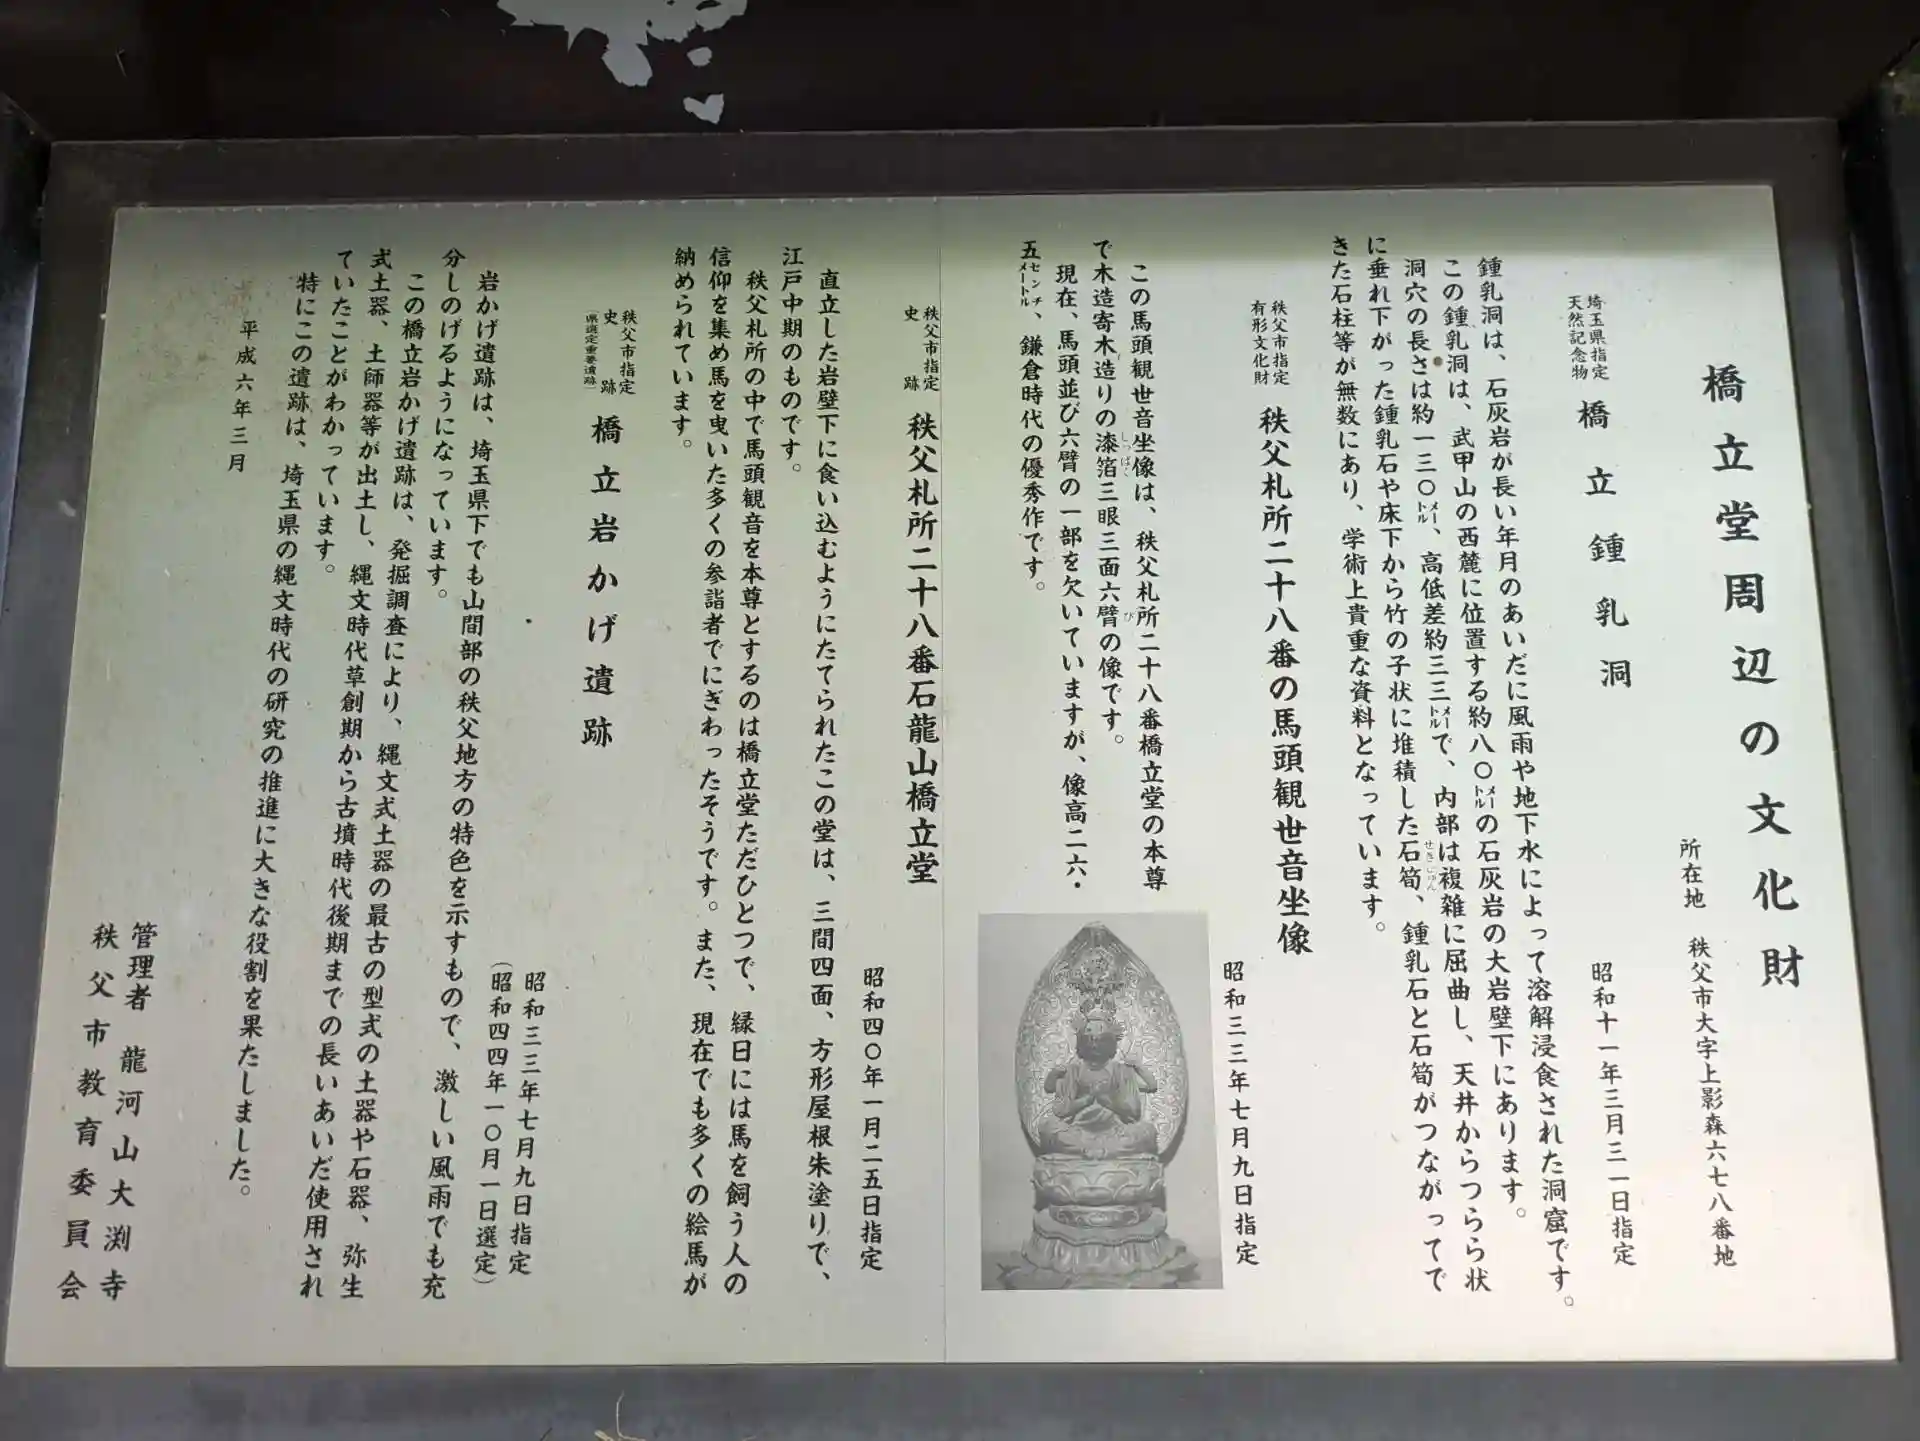 橋立堂周辺の文化財
所在地 秩父市大字上影森六七八番地
埼玉県指定
天然記念物
橋立鍾乳洞
昭和十一年三月三一日指定
鍾乳洞は、石灰岩が長い年月のあいだに風雨や地下水によって溶解浸食された洞窟です。
この鍾乳洞は、武甲山の西麓に位置する約八〇メートルの石灰岩の大岩壁下にあります。
洞穴の長さは約一三〇メートル、高低差約三三メートルで、内部は複雑に屈曲し、天井からつらら状
に垂れ下がった鍾乳石や床下から竹の子状に堆積した石筍、鍾乳石と石筍がつながってで
せきじゅん
きた石柱等が無数にあり、学術上貴重な資料となっています。
秩父市指定
有形文化財
秩父札所二十八番の馬頭観世音坐像
昭和三三年七月九日指定
この馬頭観世音坐像は、秩父札所二十八番橋立堂の本尊
で木造寄木造りの漆箔三眼三面六臂の像です。
しっぱく
び
現在、馬頭並び六臂の一部を欠いていますが、像高二六・
五センチメートル、鎌倉時代の優秀作です。
秩父市指定
史跡
秩父札所二十八番石龍山橋立堂
昭和四〇年一月二五日指定
直立した岩壁下に食い込むようにたてられたこの堂は、三間四面、方形屋根朱塗りで、
江戸中期のものです。
秩父札所の中で馬頭観音を本尊とするのは橋立堂ただひとつで、縁日には馬を飼う人の
信仰を集め馬を曳いた多くの参詣者でにぎわったそうです。また、現在でも多くの絵馬が
納められています。
秩父市指定
史跡
（県選定重要遺跡）
橋立岩かげ遺跡
昭和三三年七月九日指定
（昭和四四年一〇月一日選定）
岩かげ遺跡は、埼玉県下でも山間部の秩父地方の特色を示すもので、激しい風雨でも充
分しのげるようになっています。
この橋立岩かげ遺跡は、発掘調査により、縄文式土器の最古の型式の土器や石器、弥生
式土器、土師器等が出土し、縄文時代草創期から古墳時代後期までの長いあいだ使用され
ていたことがわかっています。
特にこの遺跡は、埼玉県の縄文時代の研究の推進に大きな役割を果たしました。
平成六年三月
管理者 龍河山大渕寺
秩父市教育委員会